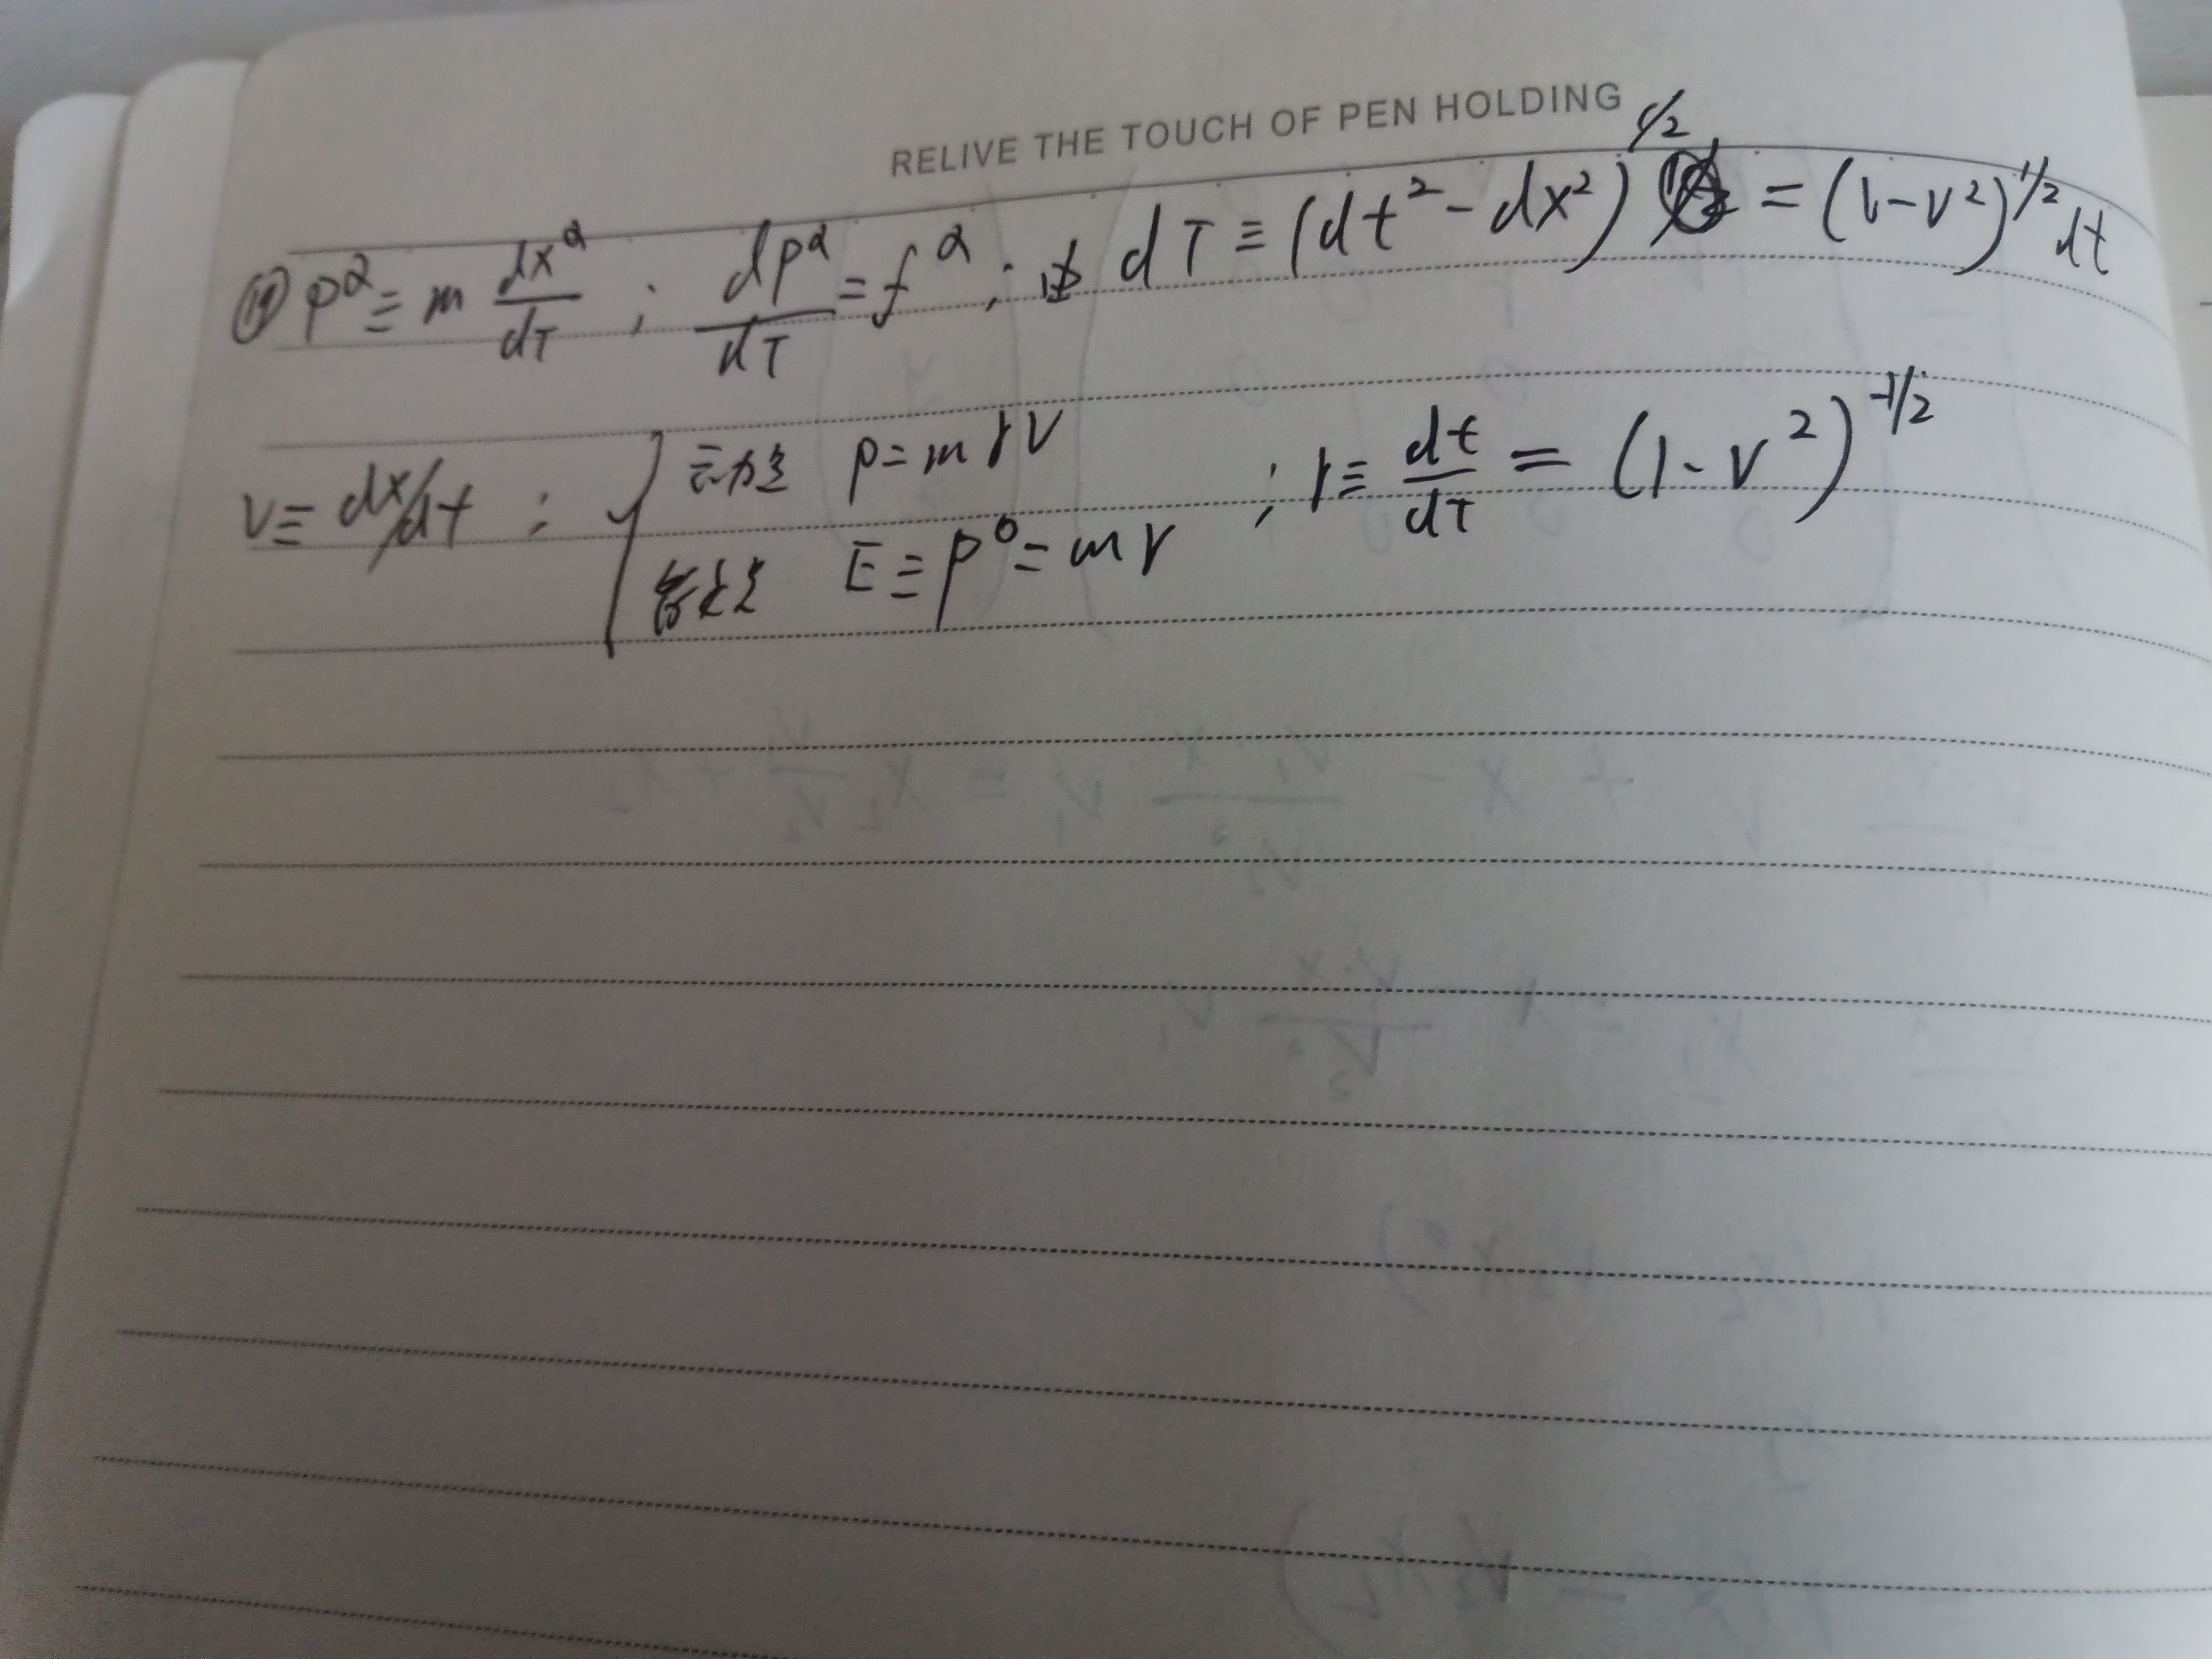 RELIVE THE TOUCH OF PEN HOLDING
⑲ p^α ≡ m dx^α/dτ ; dp^α/dτ = f^α ; 由 dτ ≡ (dt² - dx²)^1/2 = (1-v²)^1/2 dt
v ≡ dx/dt : { 动量 p = mγv
能量 E ≡ p⁰ = mγ ; γ ≡ dt/dτ = (1-v²)^-1/2